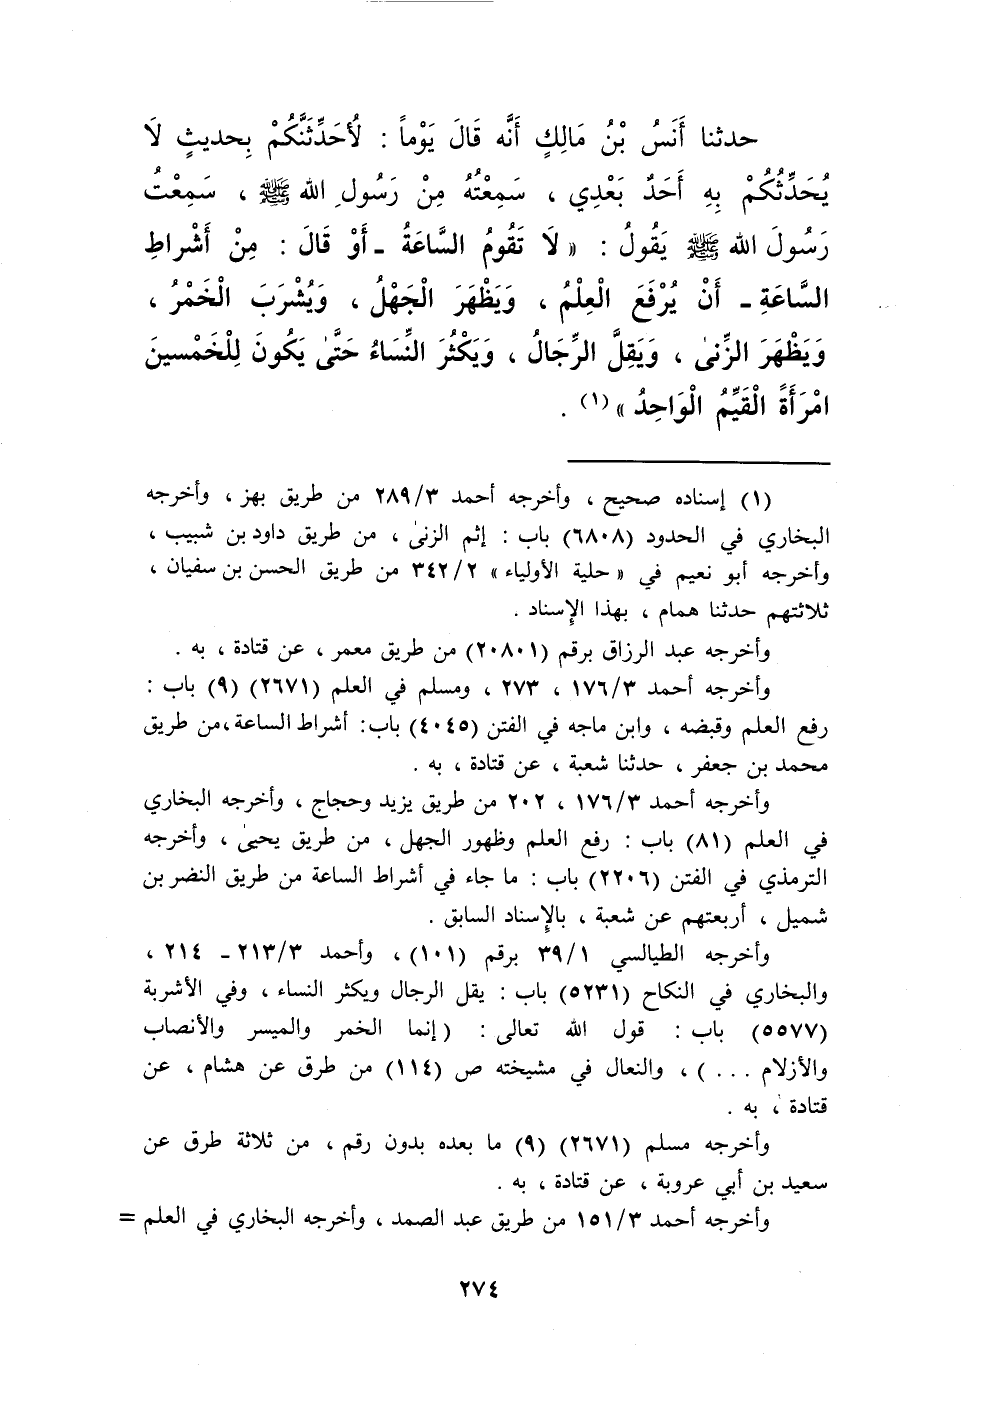 حدثنا أَنَسُ بْنُ مَالِكٍ أَنَّه قَالَ يَوْماً : لُأحَدِّثَنَّكُمْ بِحديثٍ لَا
يُحَدِّثُكُمْ بِهِ أَحَدٌ بَعْدِي ، سَمِعْتُهُ مِنْ رَسُولِ الله ﷺ ، سَمِعْتُ
رَسُولَ الله ﷺ يَقُولُ : « لَا تَقُومُ السَّاعَةُ ـ أَوْ قَالَ : مِنْ أَشْراطِ
السَّاعَةِ ـ أَنْ يُرْفَعَ الْعِلْمُ ، وَيَظْهَرَ الْجَهْلُ ، وَيُشْرَبَ الْخَمْرُ ،
وَيَظْهَرَ الزِّنىٰ ، وَيَقِلَّ الرِّجَالُ ، وَيَكْثُرَ النِّسَاءُ حَتَّىٰ يَكُونَ لِلْخَمْسينَ
امْرَأَةً الْقَيِّمُ الْوَاحِدُ »(١) .
(١) إسناده صحيح ، وأخرجه أحمد ٢٨٩/٣ من طريق بهز ، وأخرجه
البخاري في الحدود (٦٨٠٨) باب : إثم الزنىٰ ، من طريق داود بن شبيب ،
وأخرجه أبو نعيم في « حلية الأولياء » ٣٤٢/٢ من طريق الحسن بن سفيان ،
ثلاثتهم حدثنا همام ، بهذا الإسناد .
وأخرجه عبد الرزاق برقم (٢٠٨٠١) من طريق معمر ، عن قتادة ، به .
وأخرجه أحمد ١٧٦/٣ ، ٢٧٣ ، ومسلم في العلم (٢٦٧١) (٩) باب :
رفع العلم وقبضه ، وابن ماجه في الفتن (٤٠٤٥) باب: أشراط الساعة،من طريق
محمد بن جعفر ، حدثنا شعبة ، عن قتادة ، به .
وأخرجه أحمد ١٧٦/٣ ، ٢٠٢ من طريق يزيد وحجاج ، وأخرجه البخاري
في العلم (٨١) باب : رفع العلم وظهور الجهل ، من طريق يحيىٰ ، وأخرجه
الترمذي في الفتن (٢٢٠٦) باب : ما جاء في أشراط الساعة من طريق النضر بن
شميل ، أربعتهم عن شعبة ، بالإسناد السابق .
وأخرجه الطيالسي ٣٩/١ برقم (١٠١) ، وأحمد ٢١٣/٣ ـ ٢١٤ ،
والبخاري في النكاح (٥٢٣١) باب : يقل الرجال ويكثر النساء ، وفي الأشربة
(٥٥٧٧) باب : قول الله تعالى : ( إنما الخمر والميسر والأنصاب
والأزلام ... ) ، والنعال في مشيخته ص (١١٤) من طرق عن هشام ، عن
قتادة ، به .
وأخرجه مسلم (٢٦٧١) (٩) ما بعده بدون رقم ، من ثلاثة طرق عن
سعيد بن أبي عروبة ، عن قتادة ، به .
وأخرجه أحمد ١٥١/٣ من طريق عبد الصمد ، وأخرجه البخاري في العلم =
٢٧٤